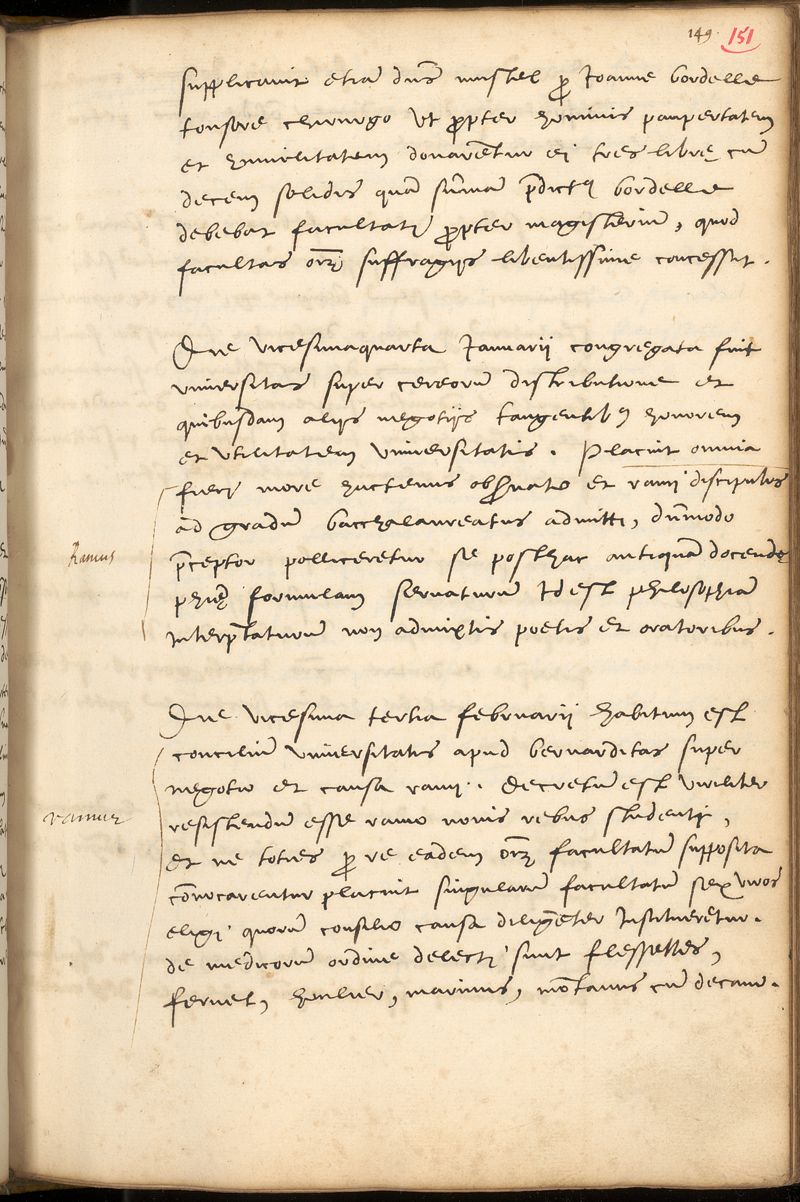 149. 151
supplicavit etiã dñs mustel p Ioanne bordelle
tonsore chirurgo ut ppter hominis paupertatem
et humilitatem donarẽtur ei tres librę cũ
decem solidis quã sũmã pdictꝰ bordelle
debebat facultati ppter magisteriũ, quod
facultas oĩm suffragijs libentissime concessit.
Die vicesimaquarta Ianuarij congregata fuit
universitas super cereorũ distributione et
quibusdam alijs negotijs tangentibꝰ honorem
et utilitatem universitatis. Placuit omnia
fieri more hactenus obseruato et rami discipulos
ad gradũ bacchalaureatus admitti, dũmodo
Ramus
pceptor polliceretur se posthac antiquã docendę
phię formulam servaturũ id est philosophiã
interptaturũ non admixtis poetis et oratoribus.
Die vicesima tertia februarij habitum est
conciliũ universitatis apud bernarditas super
negotio et causa rami. Decretũ est viriliter
ramus
resistendũ esse ramo novis rebus studenti,
et ne toties p re eadem oĩm facultatũ supposita
cõvocarentur placuit singularũ facultatũ sex viros
eligi quorũ consilio causa diligẽter institueretur.
de medicorũ ordine delecti sunt flesselles,
fernel, houlier, marinus, mõtanus cũ decano.